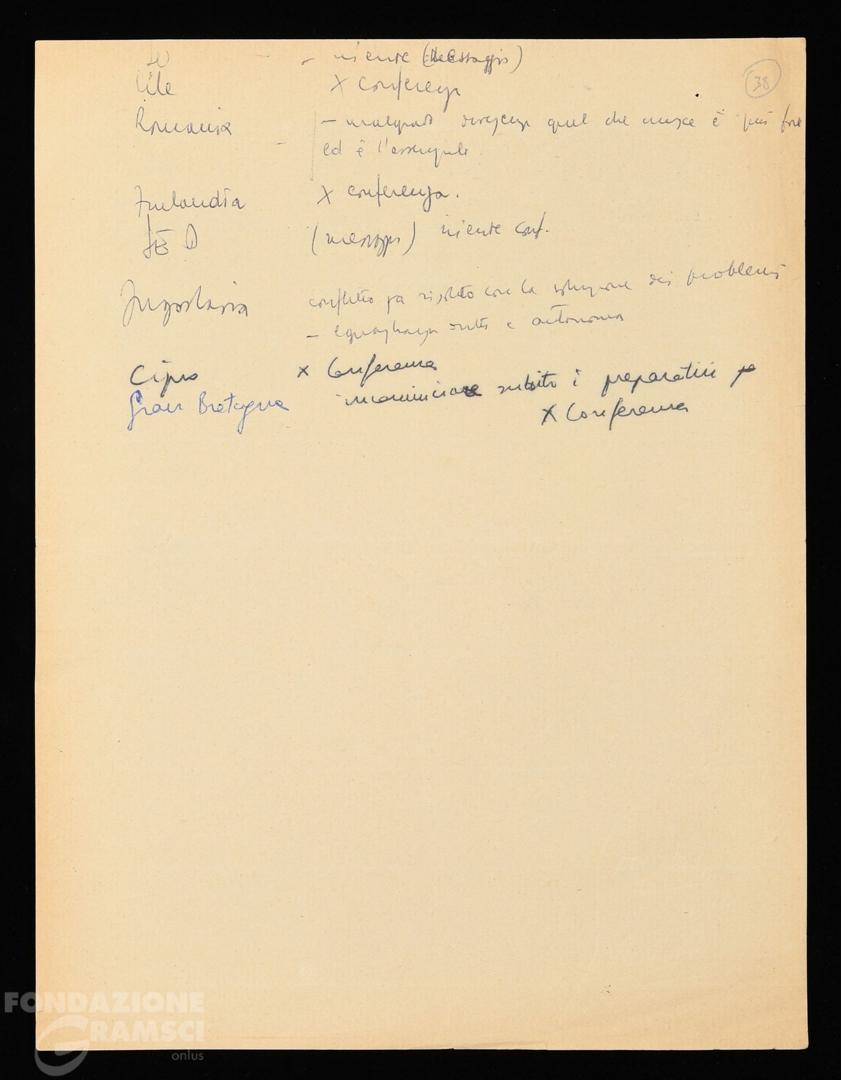 niente (messaggio)
38
Cile x Conferenza
Romania - malgrado divergenze quel che unisce è più forte
ed è l'essenziale
Finlandia x conferenza.
(messaggio) niente conf.
Jugoslavia conflitto va risolto con la soluzione dei problemi
- eguaglianza e autonomia
Cipro x Conferenza
Gran Bretagna incominciare subito i preparativi
x Conferenza
FONDAZIONE
GRAMSCI
onlus